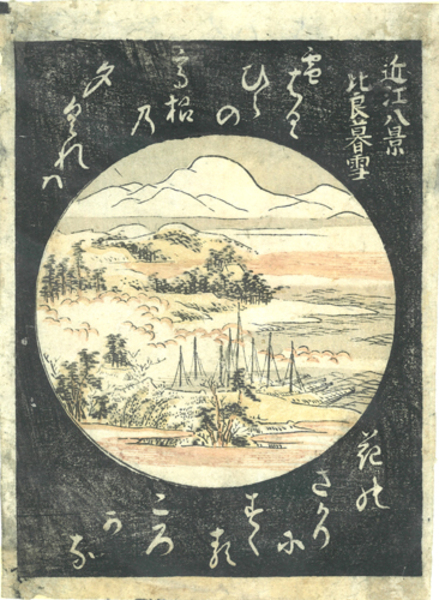 近江八景
比良暮雪
雪はるゝ
ひらの
高根
乃
夕くれハ
花の
さかり
に
すく
る
ころ
か
な